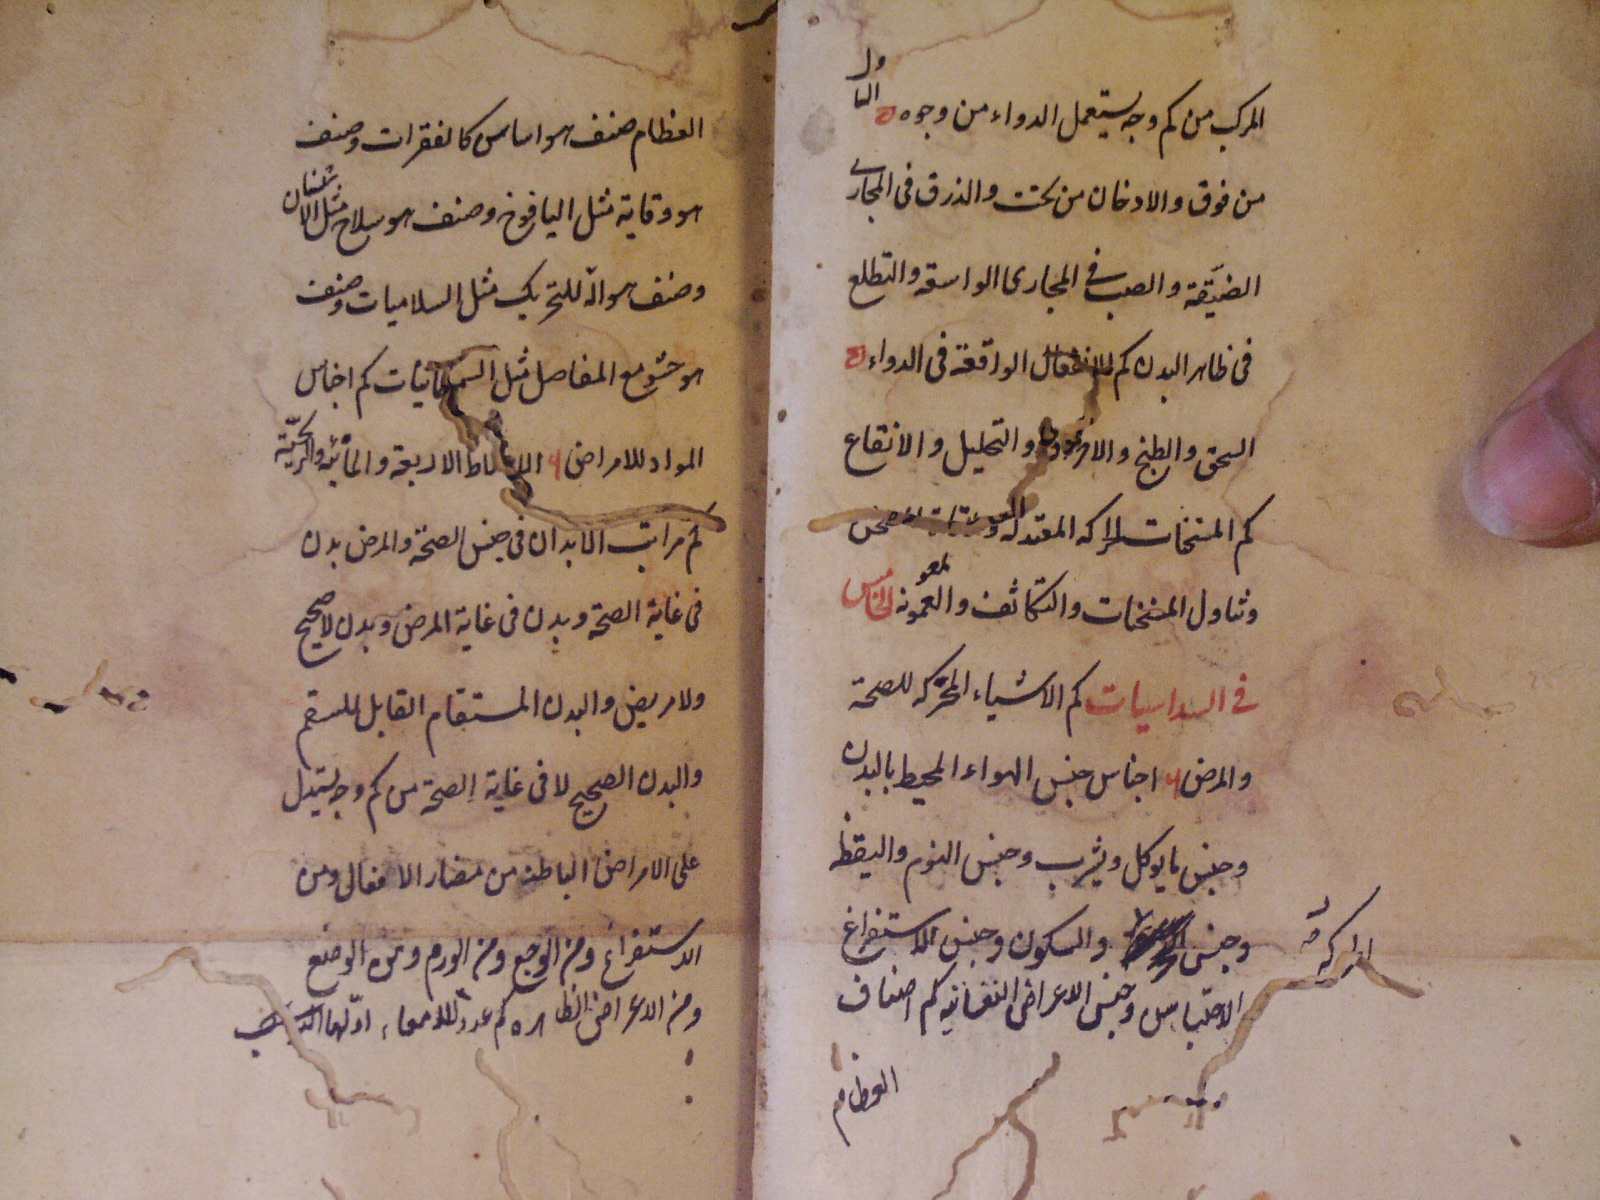 المركب من كم وجه يستعمل الدواء من وجوه ح
من فوق والادخال من تحت والذرق فى المجارى
الضيقة والصب فى المجارى الواسعة والتطلع
فى ظاهر البدن كم الافعال الواقعة فى الدواء ح
السحق والطبخ والاحراق والتحليل والانقاع
كم المسخنات الحركه المعتدله
وتناول المسخنات والتكاثف والعفونه الخامس
فى السداسيات كم الاشياء المحركه للصحة
والمرض ٦ اجناس جنس الهواء المحيط بالبدن
وجنس ما يوكل ويشرب وجنس النوم واليقظه
وجنس والسكون وجنس الاستفراغ
الحركة
الاحتباس وجنس الاعراض النفسانيه كم اصناف
العظام
العظام صنف هو اساس كالفقرات وصنف
هو وقاية مثل اليافوخ وصنف هو سلاح مثل الاسنان
وصنف هو الة للتحريك مثل السلاميات وصنف
هو حشو مع المفاصل مثل السمسمانيات كم اجناس
المواد للامراض ٦ الاخلاط الاربعة والمائية والريحية
كم مراتب الابدان فى جنس الصحة والمرض بدن
فى غاية الصحة وبدن فى غاية المرض وبدن لا صحيح
ولا مريض والبدن المستقام القابل للسقم
والبدن الصحيح لا فى غاية الصحة من كم وجه يستدل
على الامراض الباطنه من مضار الافعال ومن
الاستفراغ ومن الوجع ومن الورم ومن الوضع
ومن الاعراض الظاهره كم عدد الامعاء اولها